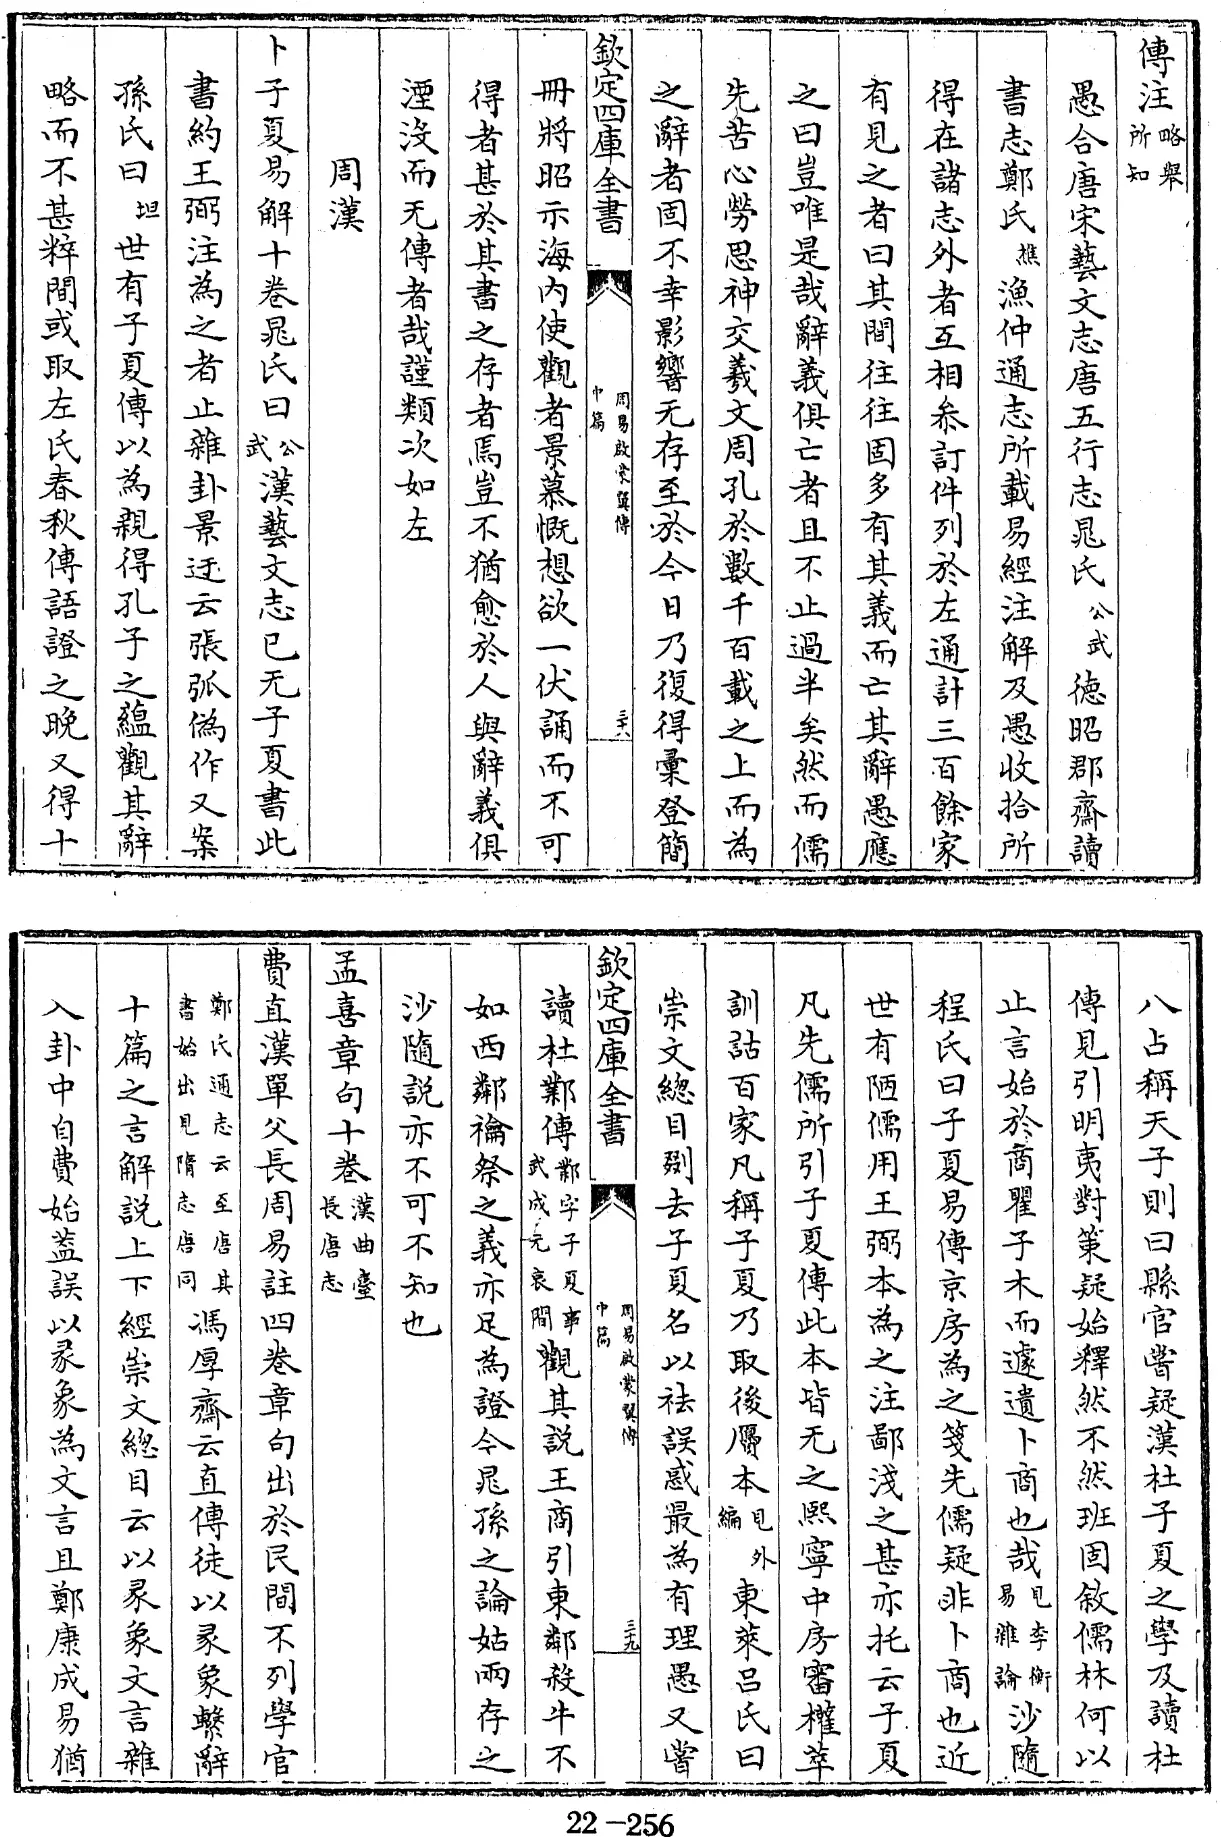 傳注略舉所知
愚合唐宋藝文志唐五行志晁氏公武德昭郡齋讀
書志鄭氏樵漁仲通志所載易經注解及愚收拾所
得在諸志外者互相叅訂件列於左通計三百餘家
有見之者曰其間往往固多有其義而亡其辭愚應
之曰豈唯是哉辭義俱亡者且不止過半矣然而儒
先苦心勞思神交羲文周孔於數千百載之上而為
之辭者固不幸影響无存至於今日乃復得彙登簡
欽定四庫全書
周易啟蒙翼傳
中篇
三十八
冊將昭示海内使觀者景慕慨想欲一伏誦而不可
得者甚於其書之存者焉豈不猶愈於人與辭義俱
湮沒而无傳者哉謹類次如左
周漢
卜子夏易解十卷晁氏曰公武漢藝文志已无子夏書此
書約王弼注為之者止雜卦景迂云張弧偽作又案
孫氏曰坦世有子夏傳以為親得孔子之蘊觀其辭
略而不甚粹間或取左氏春秋傳語證之晚又得十
八占稱天子則曰縣官嘗疑漢杜子夏之學及讀杜
傳見引明夷對策疑始釋然不然班固敘儒林何以
止言始於商瞿子木而遽遺卜商也哉見李衡易雜論沙隨
程氏曰子夏易傳京房為之箋先儒疑非卜商也近
世有陋儒用王弼本為之注鄙淺之甚亦托云子夏
凡先儒所引子夏傳此本皆无之熙寧中房審權萃
訓詁百家凡稱子夏乃取後贋本見外編東萊呂氏曰
崇文總目刪去子夏名以祛誤惑最為有理愚又嘗
欽定四庫全書
周易啟蒙翼傳
中篇
三十九
讀杜鄴傳鄴字子夏事武成元哀間觀其說王商引東鄰殺牛不
如西鄰禴祭之義亦足為證今晁孫之論姑兩存之
沙隨說亦不可不知也
孟喜章句十卷漢曲臺長唐志
費直漢單父長周易註四卷章句出於民間不列學官
鄭氏通志云至唐其書始出見隋志唐同馮厚齋云直傳徒以彖象繫辭
十篇之言解說上下經崇文總目云以彖象文言雜
入卦中自費始葢誤以彖象為文言且鄭康成易猶
22-256